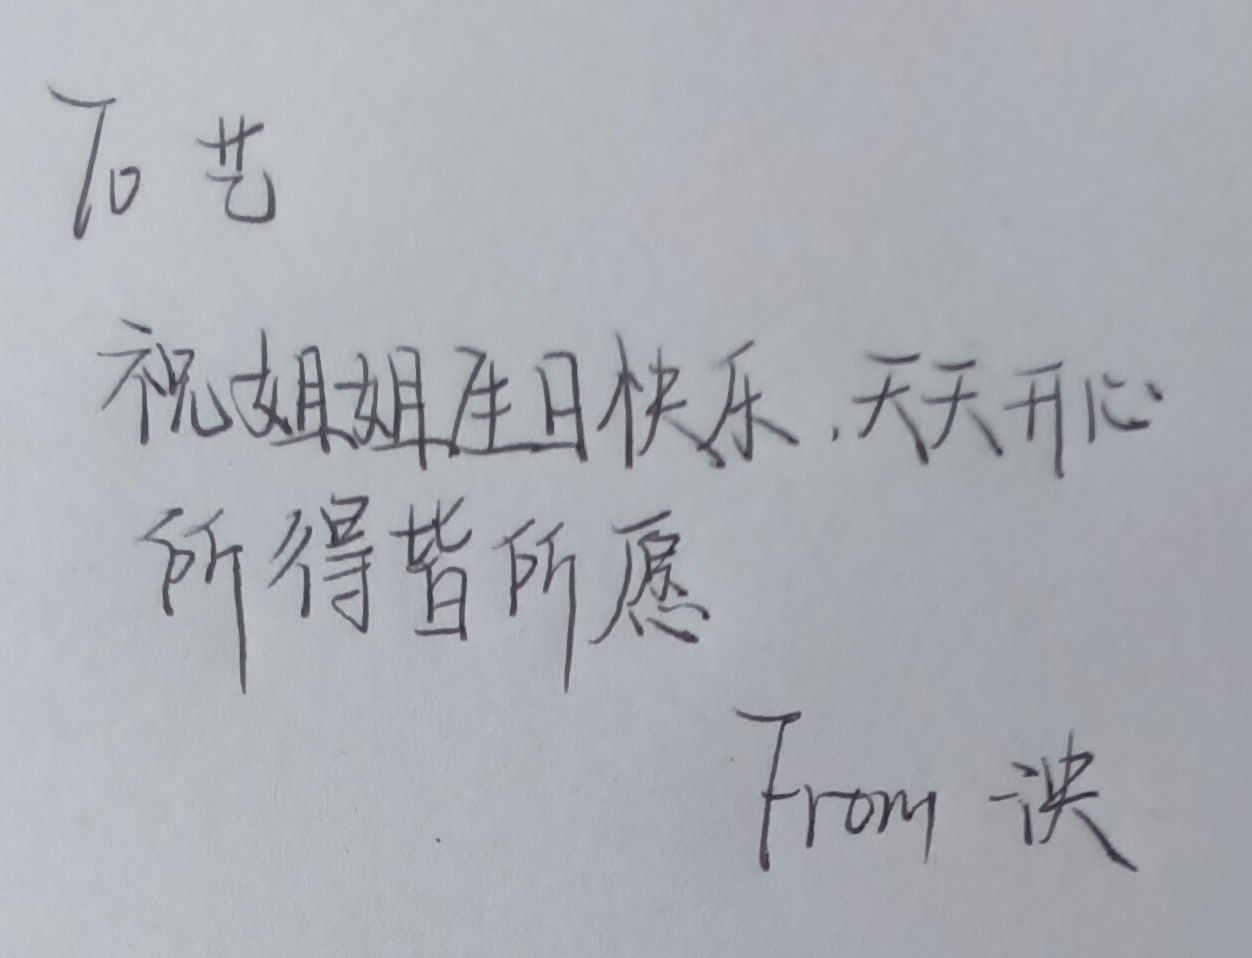 To 艺
祝姐姐生日快乐.天天开心
所得皆所愿
From 泱